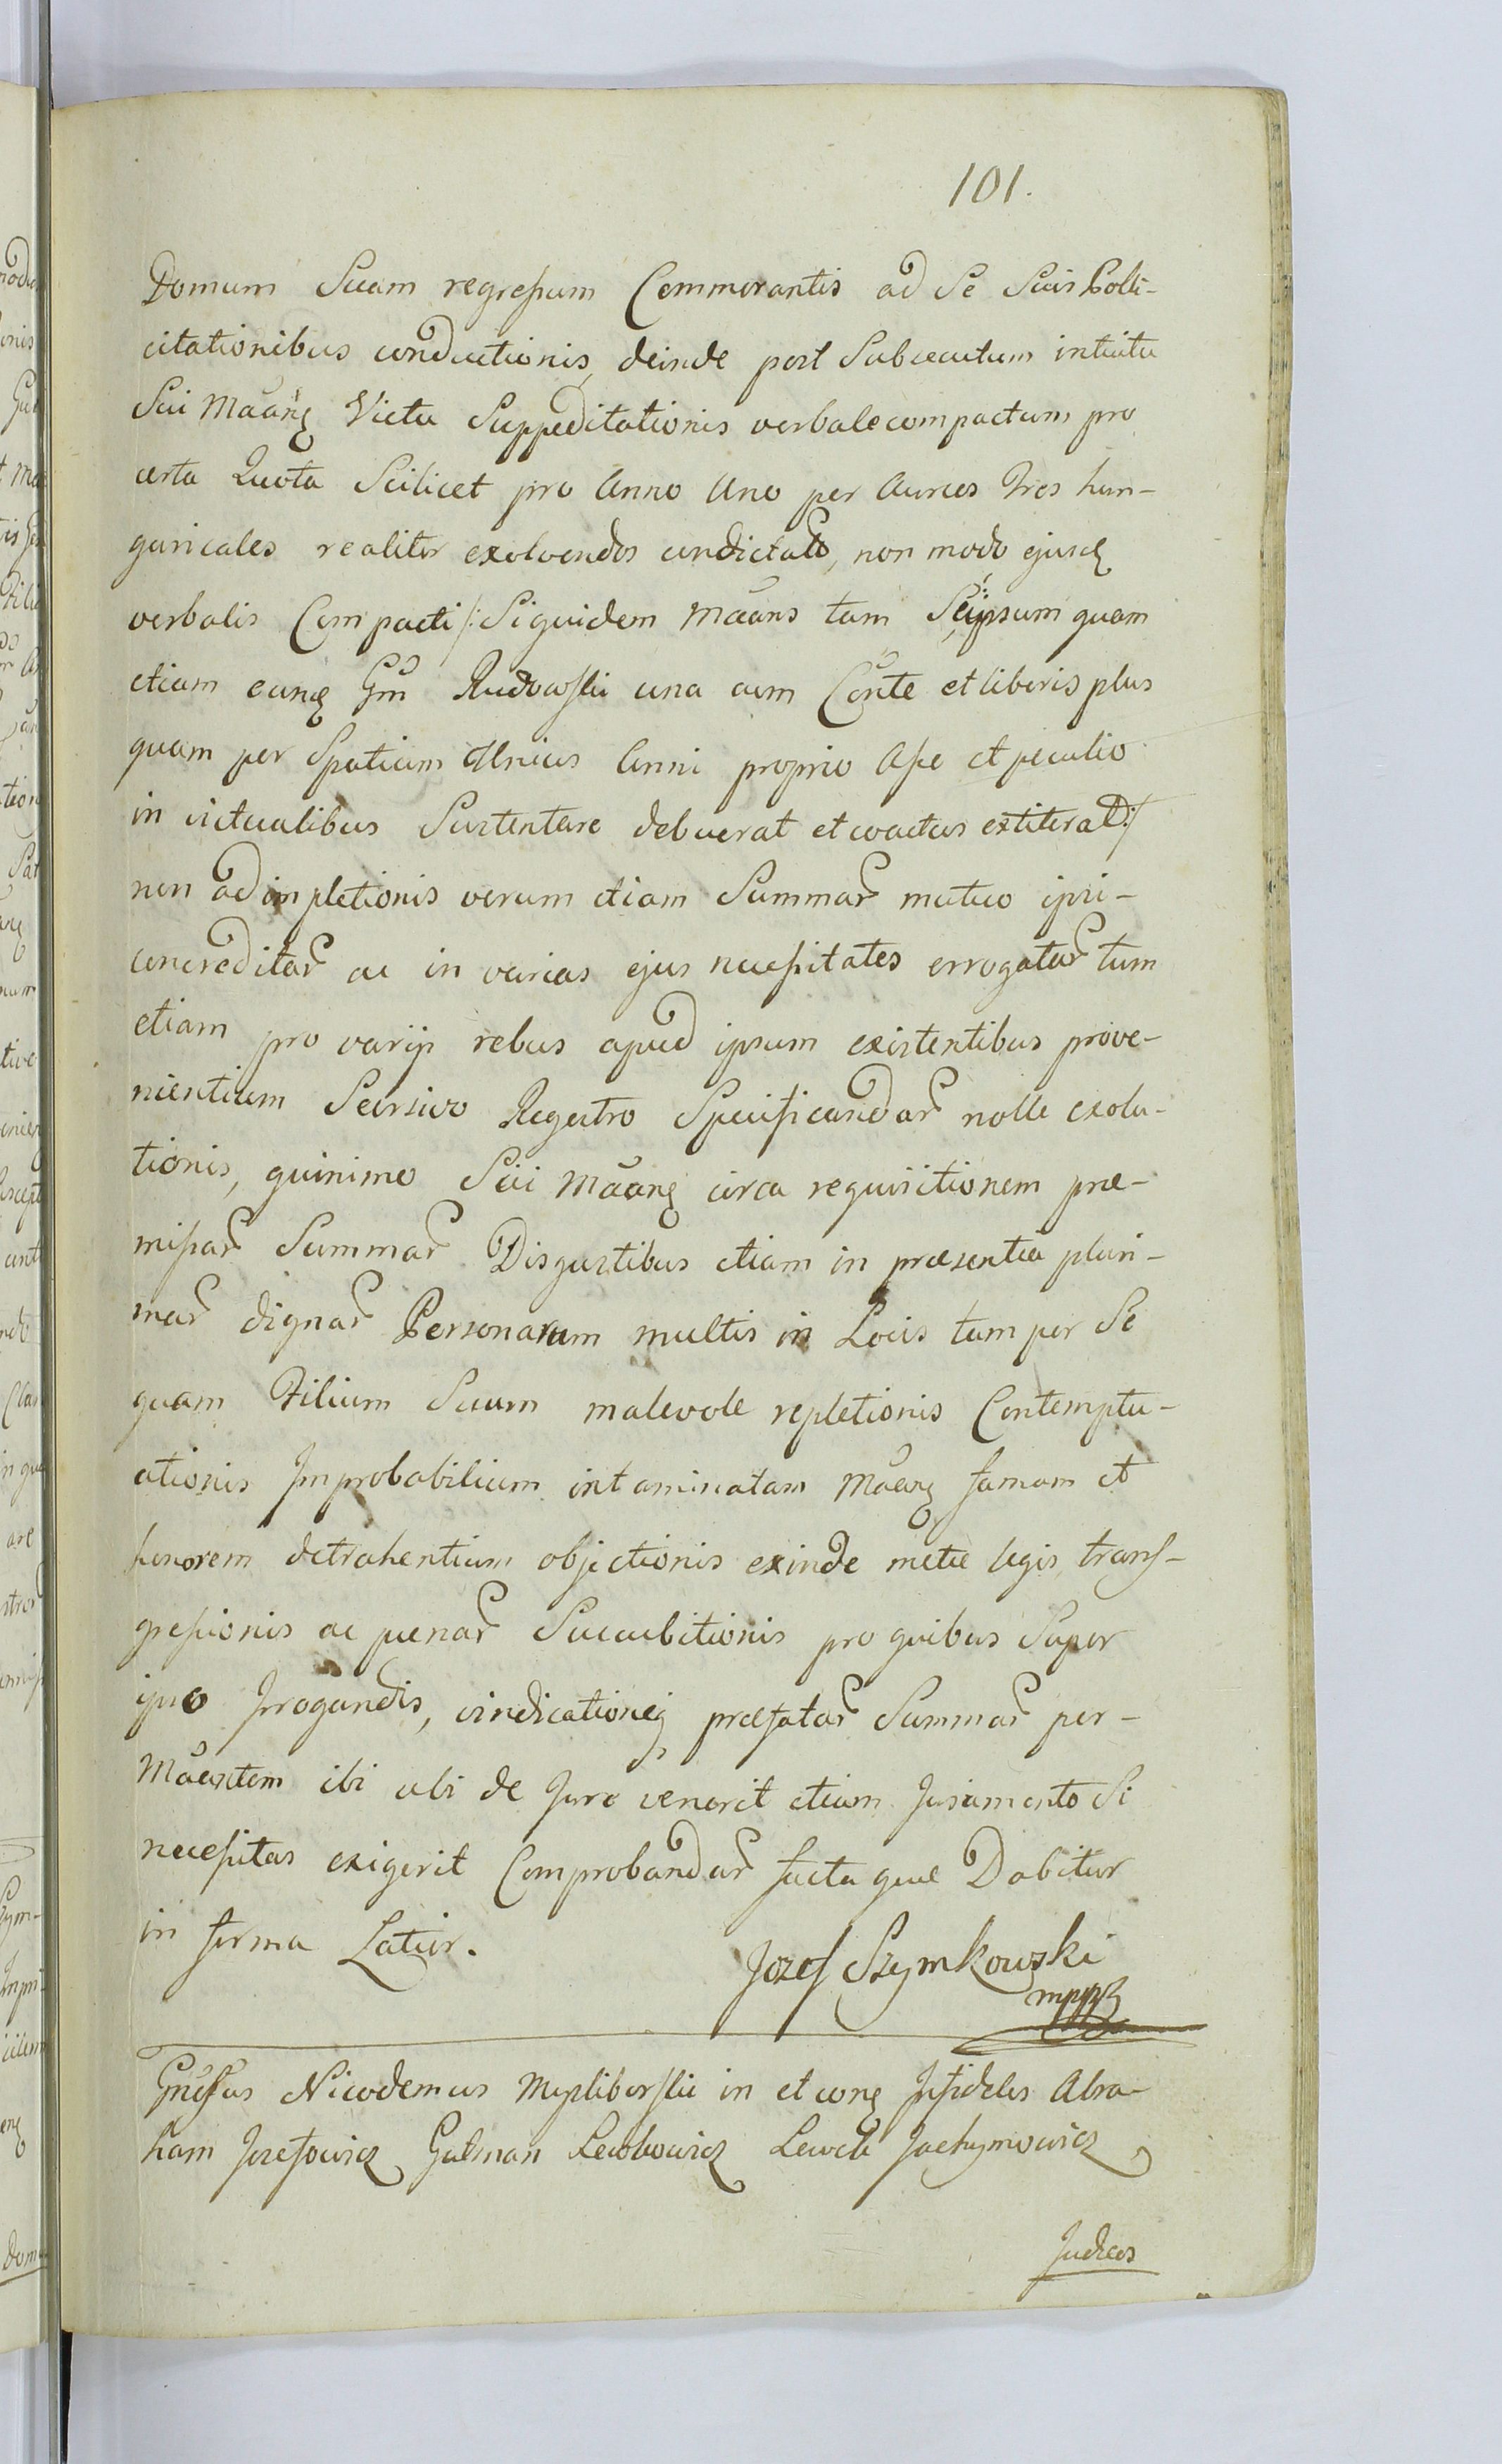 101.
Domum Suam regressum Commorantis ad Se Suis Polli-
citationibus conductionis, deinde post Subsecutum intuitu
Sui Maãnę Victu Suppeditationis verbale compactum pro
certa Quota Scilicet pro Anno Uno per Aureos Tres hun-
garicales realiter exolvendos condictato, non modo ejusdę
verbalis Compacti /: Siquidem Maãns tam Seipsum quam
etiam eundę Gm Rudowski una cum Conte et liberis plus
quam per Spatium Unius Anni proprio Aße et peculio
in victualibus Sustentare debuerat et coactus extiterat :/
non adimpletionis verum etiam Summar mutuo ipsi-
concreditar ac in varias ejus necessitates errogatar tum
etiam pro varijs rebus apud ipsum existentibus prove-
nientium Seorsivo Regestro Specificandar nolle exolu-
tionis, quinimo Sui Maãnę circa requisitionem præ-
missar Summar Disgustibus etiam in præsentia pluri-
mar dignar Personarum multis in Locis tum per Se
quam Filium Suum malevole repletionis Contemptu-
ationis Improbabilium intaminatam Maãnę famam et
honorem detrahentium objectionis exinde metu legis trans-
gressionis ac pœnar Succubitionis pro quibus Super
ipso Irrogandis, vindicationeq præfatar Summar per-
Maãntem ibi ubi de Jure venerit etiam Juramento Si
necessitas exigerit Comprobandar facta quæ Dabitur
in forma Latior.
Jozef Szymkowski
mppa
Gnosus Nicodemus Mysliborski in et conę Infideles Abra-
ham Jozefowicz Gutman Lewkowicz Lewek Jachymowicz
Judæos